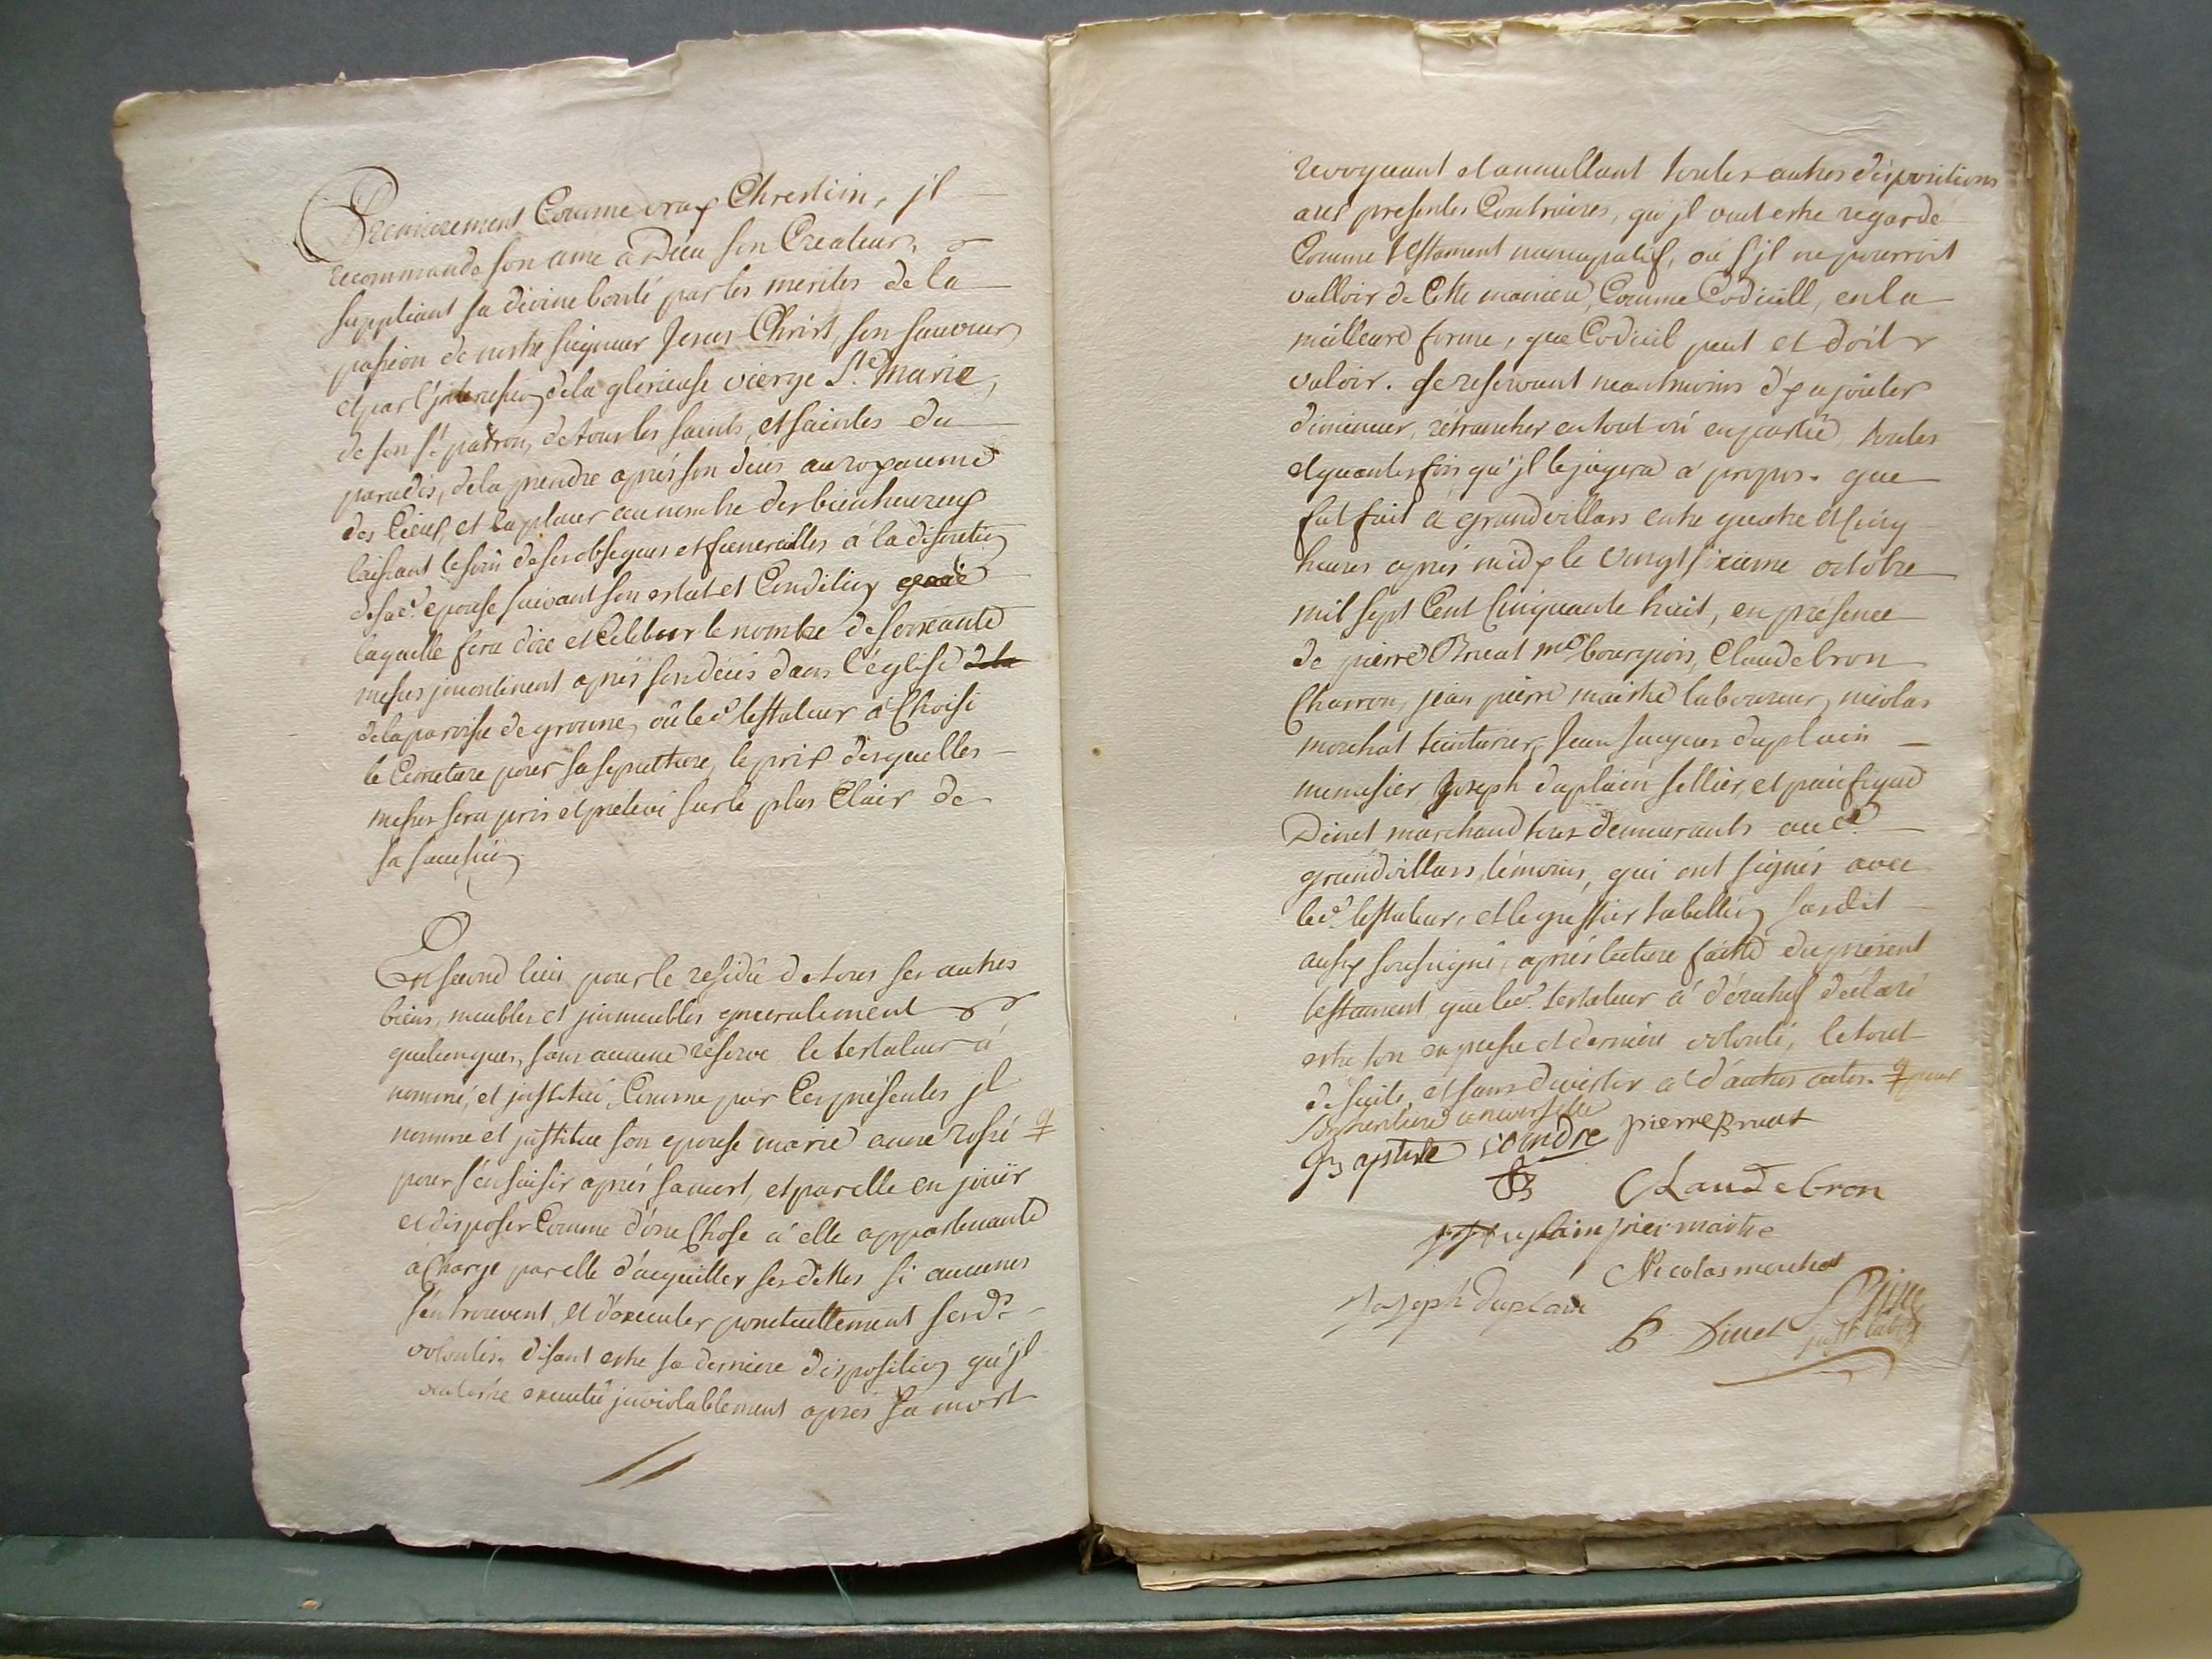 Premierement Comme vray Chrestien, jl
recommande son ame à Dieu son Createur,
suppliant sa divine bonté par les merites de la
passion de nostre seigneur Jesus Christ, son sauveur
et par l'jntercession de la glorieuse vierge Ste. Marie,
de son st. patron, de tous les saints, et saintes du
paradis, de la prendre après son decès au royaume
des Cieux, et la placer au nombre des bienheureux
laissant le soin de ses obseques et funerailles à la discretion
de sad. epouse suivant son estat et Condition
laquelle fera dire et Celebrer le nombre de soixante
messes jncontinent après son decès dans l'église de la
de la paroisse de gronne, où led. testateur à Choisi
le Cimetiere pour sa sepulture, le prix desquelles
messes sera pris et prelevé sur le plus Clair de
sa succession
En second lieu pour le residû de tous ses autres
biens, meubles et jmmeubles generalement
quelconques, sans aucune réserve le testateur à
nommé, et jnstitué, Comme par Ces présentes jl
nomme et jnstitue son epouse marie anne rossé
pour s'en saisir après sa mort, et par elle en jouïr
et disposer Comme d'une Chose à elle appartenante
à Charge par elle d'acquitter ses dettes si aucunes
s'en trouvent, et d'executer ponctuellement sesd.
volontés, disant estre sa derniere disposition qu'jl
veut estre executée jnviolablement après sa mort
revoquant et annullant toutes autres dispositions
aux presentes Contraires, qu'jl veut estre regardé
Comme testament nuncupatif, où s'jl ne pourroit
valloir de Cette maniere, Comme Codicill, en la
meilleure forme, que Codicil peut et doit
valoir. se reservant neantmoins d'y ajouter
diminuer, rétrancher en tout où en partie, toutes
et quantes fois qu'jl le jugera à propos. que
fut fait à grandvillars entre quatre et cinq
heures après midy le vingt sixieme octobre
mil sept Cent Cinquante huit, en présence
de pierre Bruat me. bourgeois, Claude bron
Charron, jean pierre maistre laboureur, nicolas
morchat teinturier, Jean Jacques duplain
menusier Joseph duplain sellier, et
Dinet marchand tous demeurants aud.
grandvillars, témoins, qui ont signés avec
led. testateur, et le greffier tabellion susdit
aussy soussigné, après lecture faitte du présent
testament que led. testateur à dérechef déclaré
estre son expresse et derniere volonté, le tout
de suite, et sans divertir à d'autres actes. pour
son heritiere universelle
pierre Bruat
Claude bron
duplain pier maitre
Nicolas morchat
Joseph duplain
Dinet